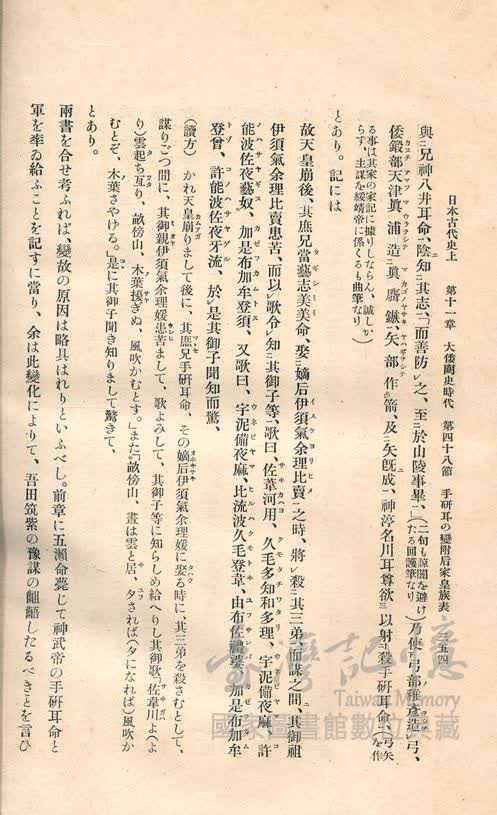 日本古代史上　第十一章　大倭闕史時代　第四十八節　手研耳の變附后家皇族表　三五四
與㆓兄神八井耳命㆒、陰知㆓其志㆒而善防㆑之、至㆓於山陵事畢㆒、（二句も諒闇を避けたる回護筆なり）乃使㆓弓部稚彥造㆒弓、
倭鍛部天津眞浦造㆓眞麛鏃㆒、矢部作㆑箭、及㆓矢旣成㆒、神渟名川耳尊欲㆔以射㆓殺手研耳命㆒、（弓矢を作
る事は其家の家記に據りしならん、誠しからず、主謀を綏靖帝に係くるも曲筆なり）
とあり。記には
故天皇崩後、其庶兄當藝志美美命、娶㆓其嫡后伊須氣余理比賣㆒之時、將㆑殺㆓其三弟㆒而謀之間、其御祖
伊須氣余理比賣患苦、而以㆑歌令㆑知㆓其御子等㆒、歌曰、佐葦河用、久毛多知和多理、宇泥備夜麻、許
能波佐夜藝奴、加是布加牟登須、又歌曰、宇泥備夜麻、比流波久毛登韋、由布佐禮婆、加是布加牟
登曾、許能波佐夜牙流、於㆑是其御子聞知而驚、
（讀方）かれ天皇崩りまして後に、其庶兄手研耳命、その嫡后伊須氣余理媛に娶る時に、其三弟を殺さむとして、
謀りごつ間に、其御親伊須氣余理媛患苦まして、歌よみして、其御子等に知らしめ給へりし其御歌「佐韋川よ（よ
り）雲起ち亙り、畝傍山、木葉擾ぎぬ、風吹かむとす。」また「畝傍山、晝は雲と居、夕されば（夕になれば）風吹か
むとぞ、木葉さやける。」是に其御子聞き知りまして驚て、
とあり。
兩書を合せ考ふれば、變故の原因は略具はれりといふべし。前章に五瀨命薨じて神武帝の手研耳命と
軍を率ゐ給ふことを記すに當り、余は此變化によりて、吾田筑紫の豫謀の齟齬したるべきことを言ひ
臺灣記憶
Taiwan Memory
國家圖書館數位典藏